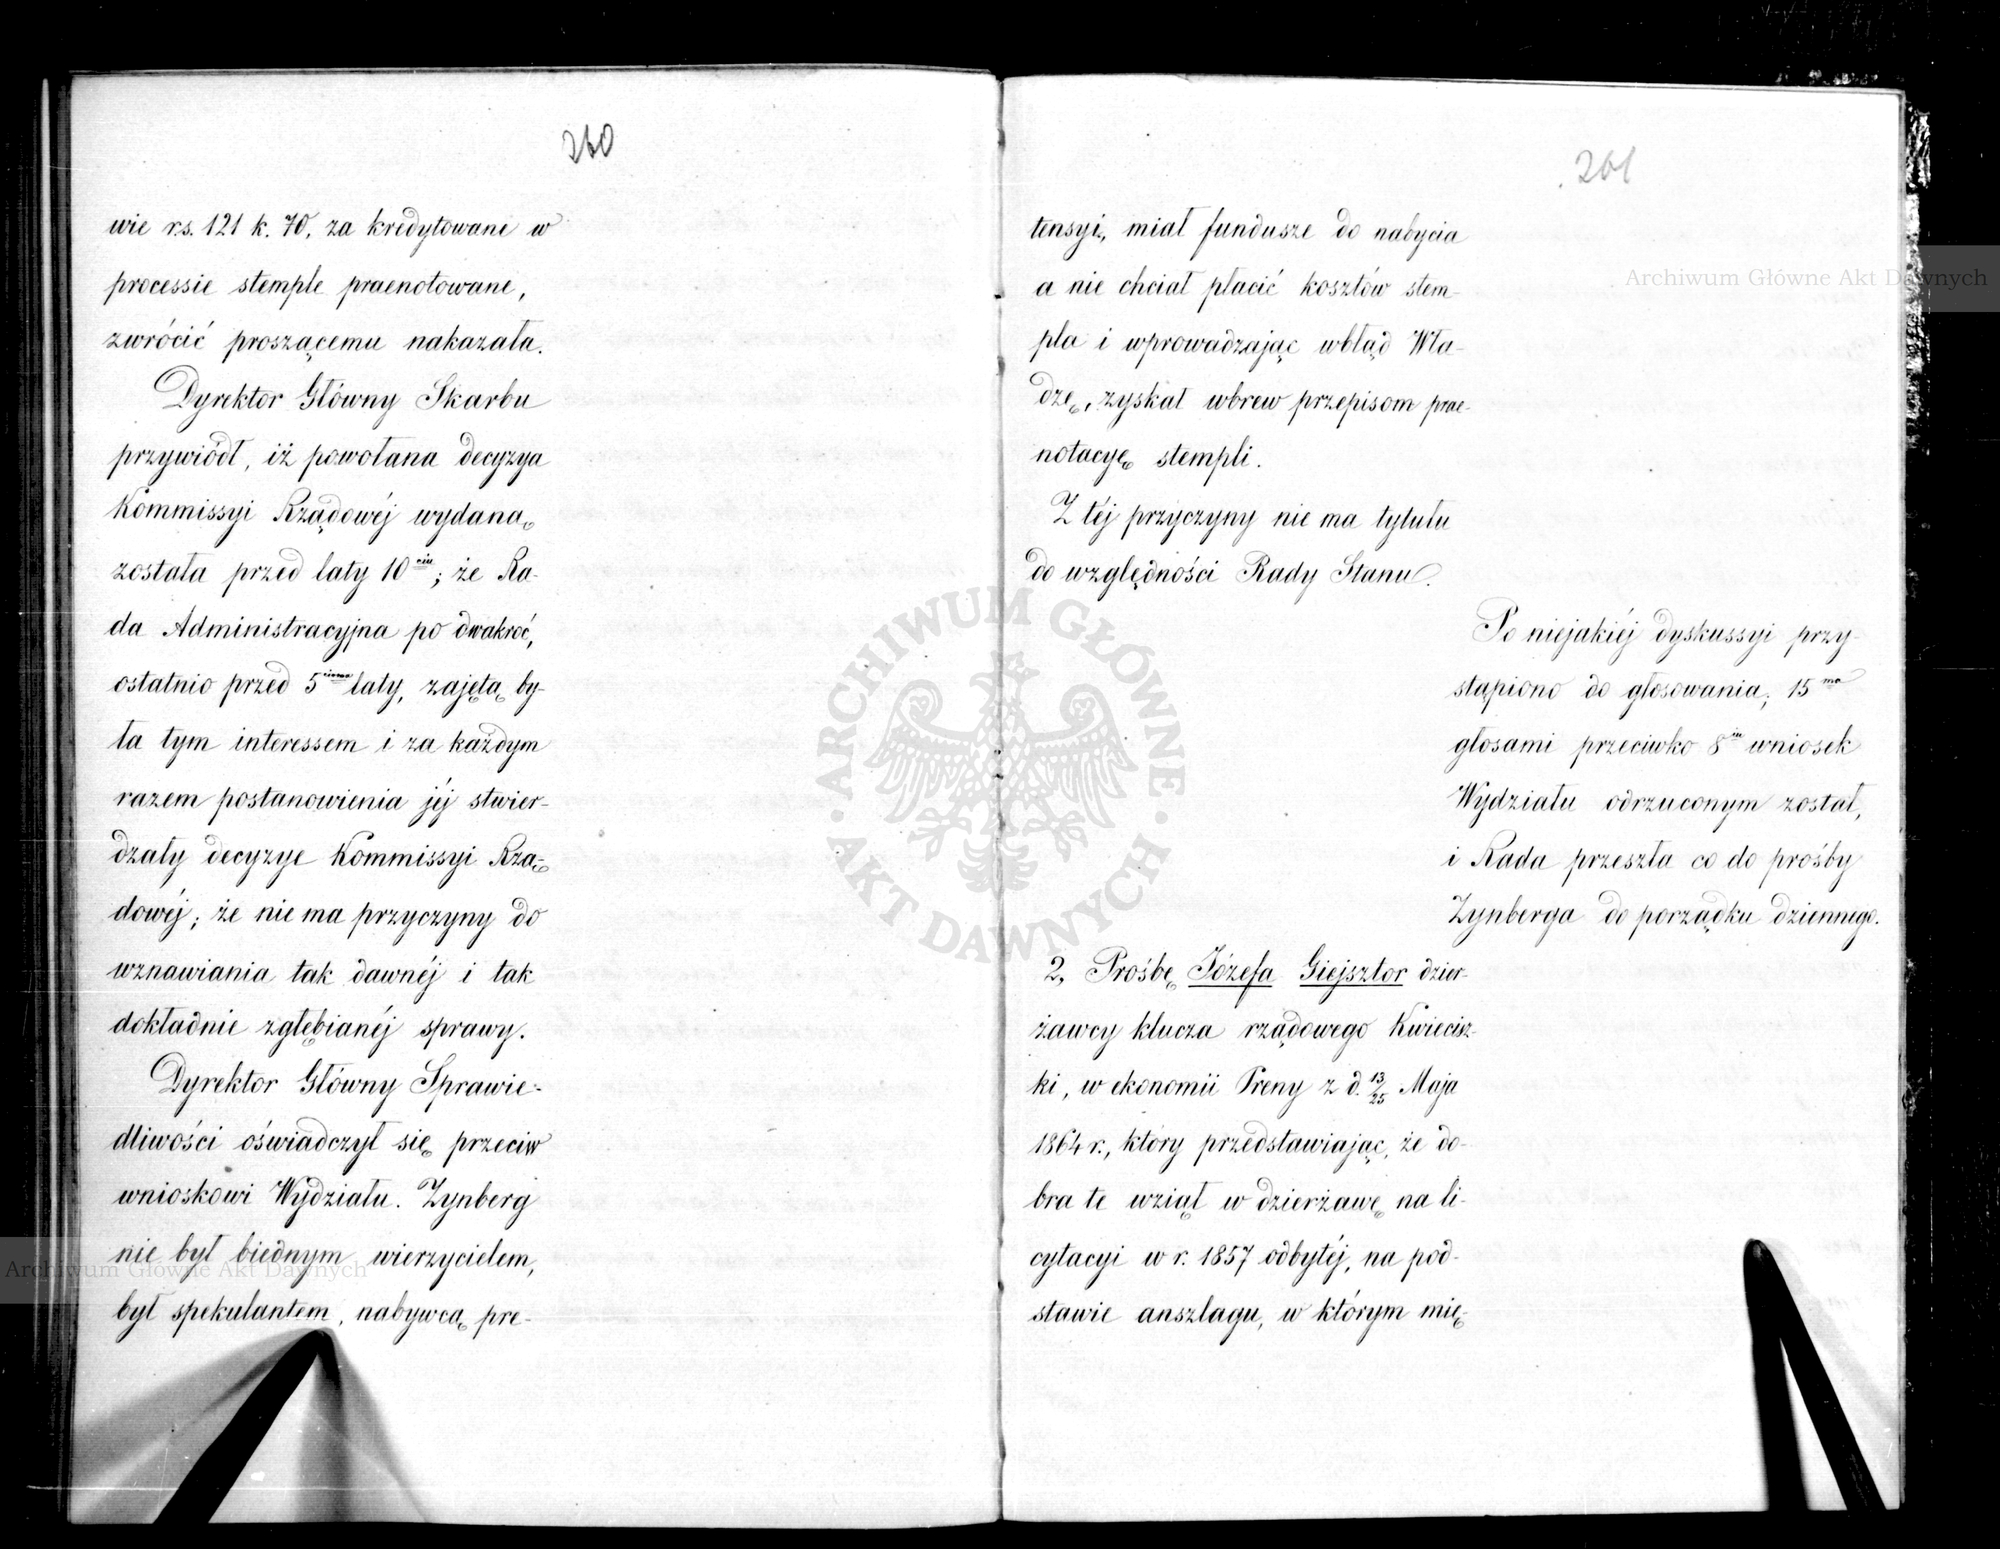 260
wie rs. 121 k. 70, za kredytowane w
processie stemple praenotowane,
zwrócić proszącemu nakazała.
Dyrektor Główny Skarbu
przywiódł, iż powołana decyzya
Kommissyi Rządowéj wydaną
została przed laty 10ciu; że Ra-
da Administracyjna po dwakroć,
ostatnio przed 5cioma laty, zajętą by-
ła tym interessem i za każdym
razem postanowienia jéj stwier-
dzały decyzye Kommissyi Rzą-
dowéj; że nie ma przyczyny do
wznawiania tak dawnéj i tak
dokładnie zgłębianéj sprawy.
Dyrektor Główny Sprawie-
dliwości oświadczył się przeciw
wnioskowi Wydziału. Zynberg
nie był biednym wierzycielem,
był spekulantem, nabywcą pre-
261
tensyi, miał fundusze do nabycia
a nie chciał płacić kosztów stem-
pla i wprowadzając wbłąd Wła-
dzę, zyskał wbrew przepisom prae-
notacyę stempli.
Z téj przyczyny nie ma tytułu
do względności Rady Stanu.
Po niejakiéj dyskussyi przy-
stąpiono do głosowania; 15ma
głosami przeciwko 8iu wniosek
Wydziału odrzuconym został,
i Rada przeszła co do prośby
Zynberga do porządku dziennego.
2, Prośbę Józefa Giejsztor dzier-
żawcy klucza rządowego Kwiecisz-
ki, w ekonomii Preny z d. 13/25 Maja
1864 r., który przedstawiając, że do-
bra te wziął w dzierżawę na li-
cytacyi w r. 1857 odbytéj, na pod-
stawie anszlagu, w którym mię-
Archiwum Główne Akt Dawnych
Archiwum Główne Akt Dawnych
ARCHIWUM GŁÓWNE · AKT DAWNYCH ·